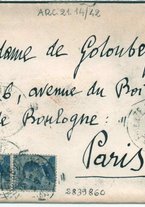 ARC 21 14/42
dame de Goloube
6, avenue du Boi
de Boulogne :
Paris
S839860